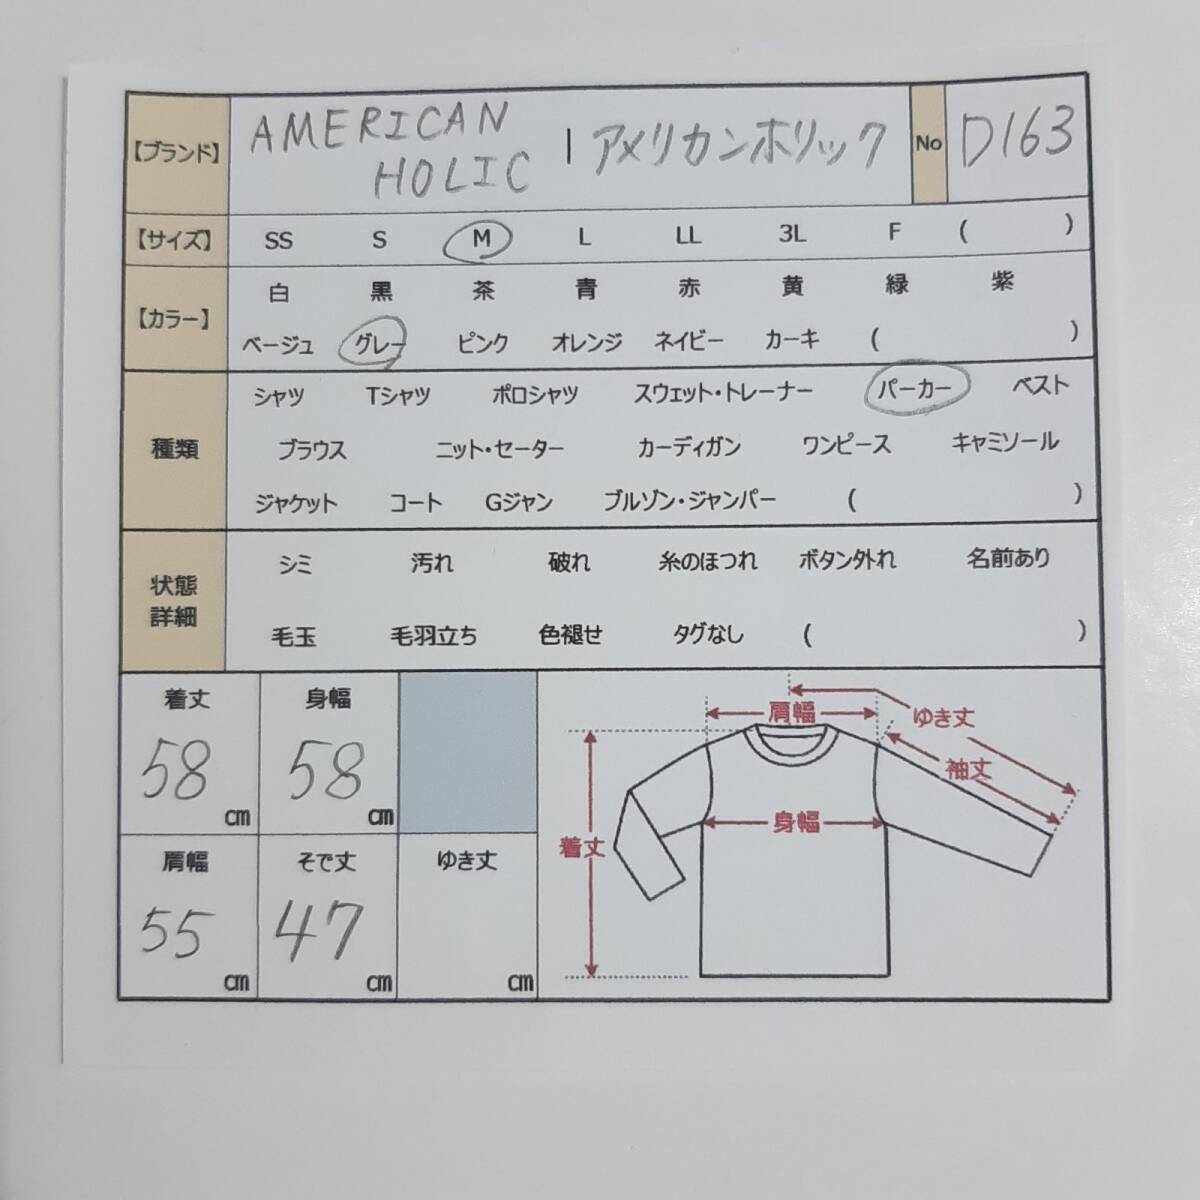 【ブランド】 AMERICAN HOLIC | アメリカンホリック No D163
【サイズ】 SS S M L LL 3L F ( )
白 黒 茶 青 赤 黄 緑 紫
【カラー】
ベージュ グレー ピンク オレンジ ネイビー カーキ ( )
シャツ Tシャツ ポロシャツ スウェット・トレーナー パーカー ベスト
種類 ブラウス ニット・セーター カーディガン ワンピース キャミソール
ジャケット コート Gジャン ブルゾン・ジャンパー ( )
シミ 汚れ 破れ 糸のほつれ ボタン外れ 名前あり
状態
詳細
毛玉 毛羽立ち 色褪せ タグなし ( )
着丈 身幅
58 cm 58 cm
肩幅 そで丈 ゆき丈
55 cm 47 cm cm
肩幅
ゆき丈
袖丈
身幅
着丈